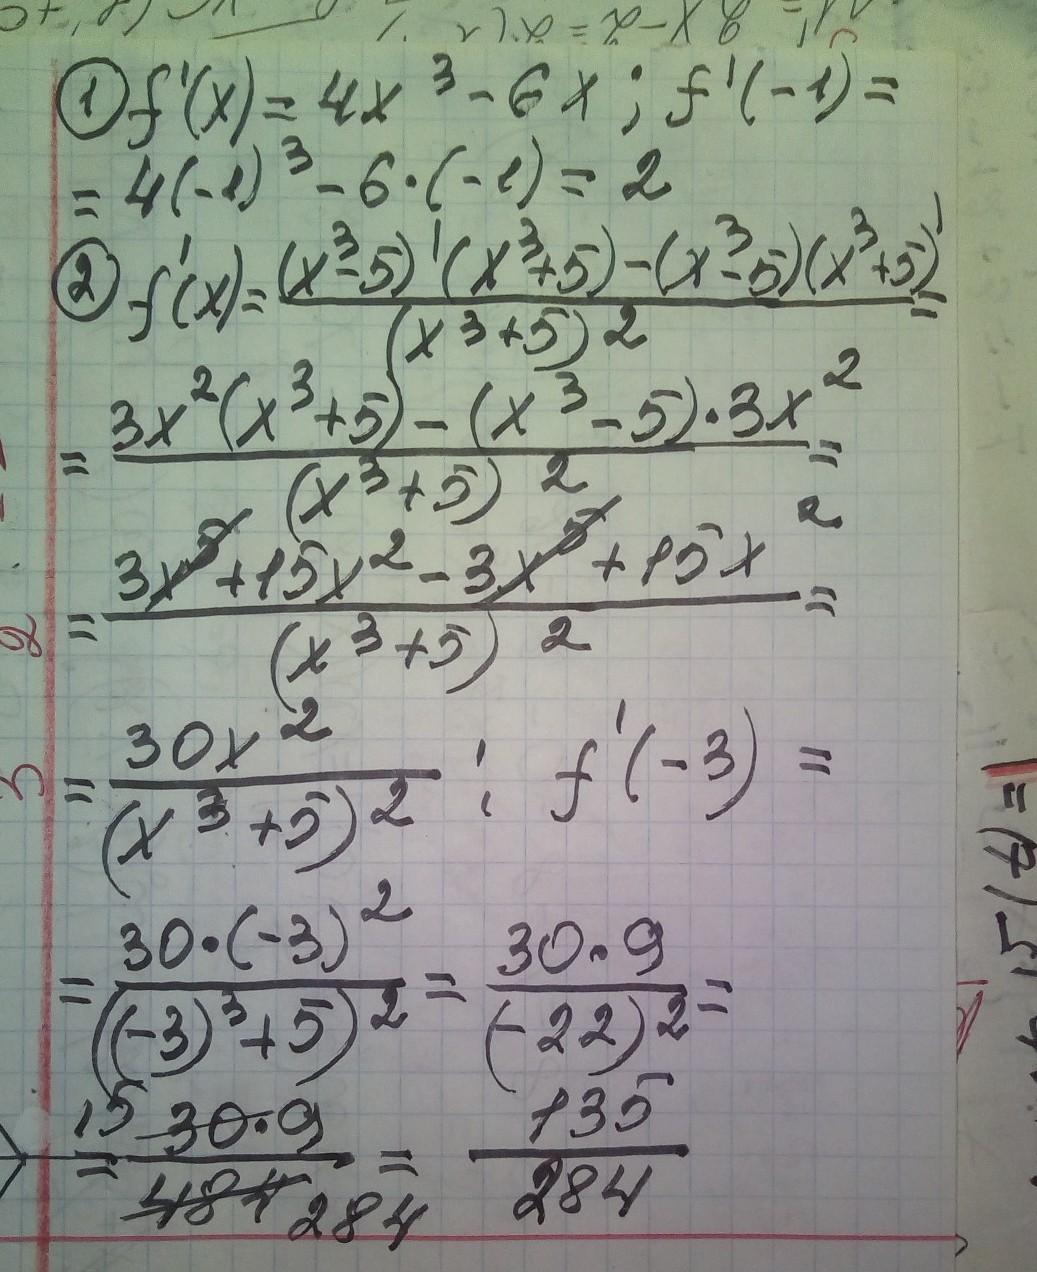 ① f'(x) = 4x³ - 6x ; f'(-1) =
= 4(-1)³ - 6·(-1) = 2
② f'(x) = ((x³-5)'(x³+5) - (x³-5)(x³+5)')/(x³+5)² =
= (3x²(x³+5) - (x³-5)·3x²)/(x³+5)² =
= (3x⁵ + 15x² - 3x⁵ + 15x²)/(x³+5)² =
= 30x²/(x³+5)² ; f'(-3) =
= 30·(-3)²/((-3)³+5)² = 30·9/(-22)² =
= 15 30·9/484 284 = 135/284